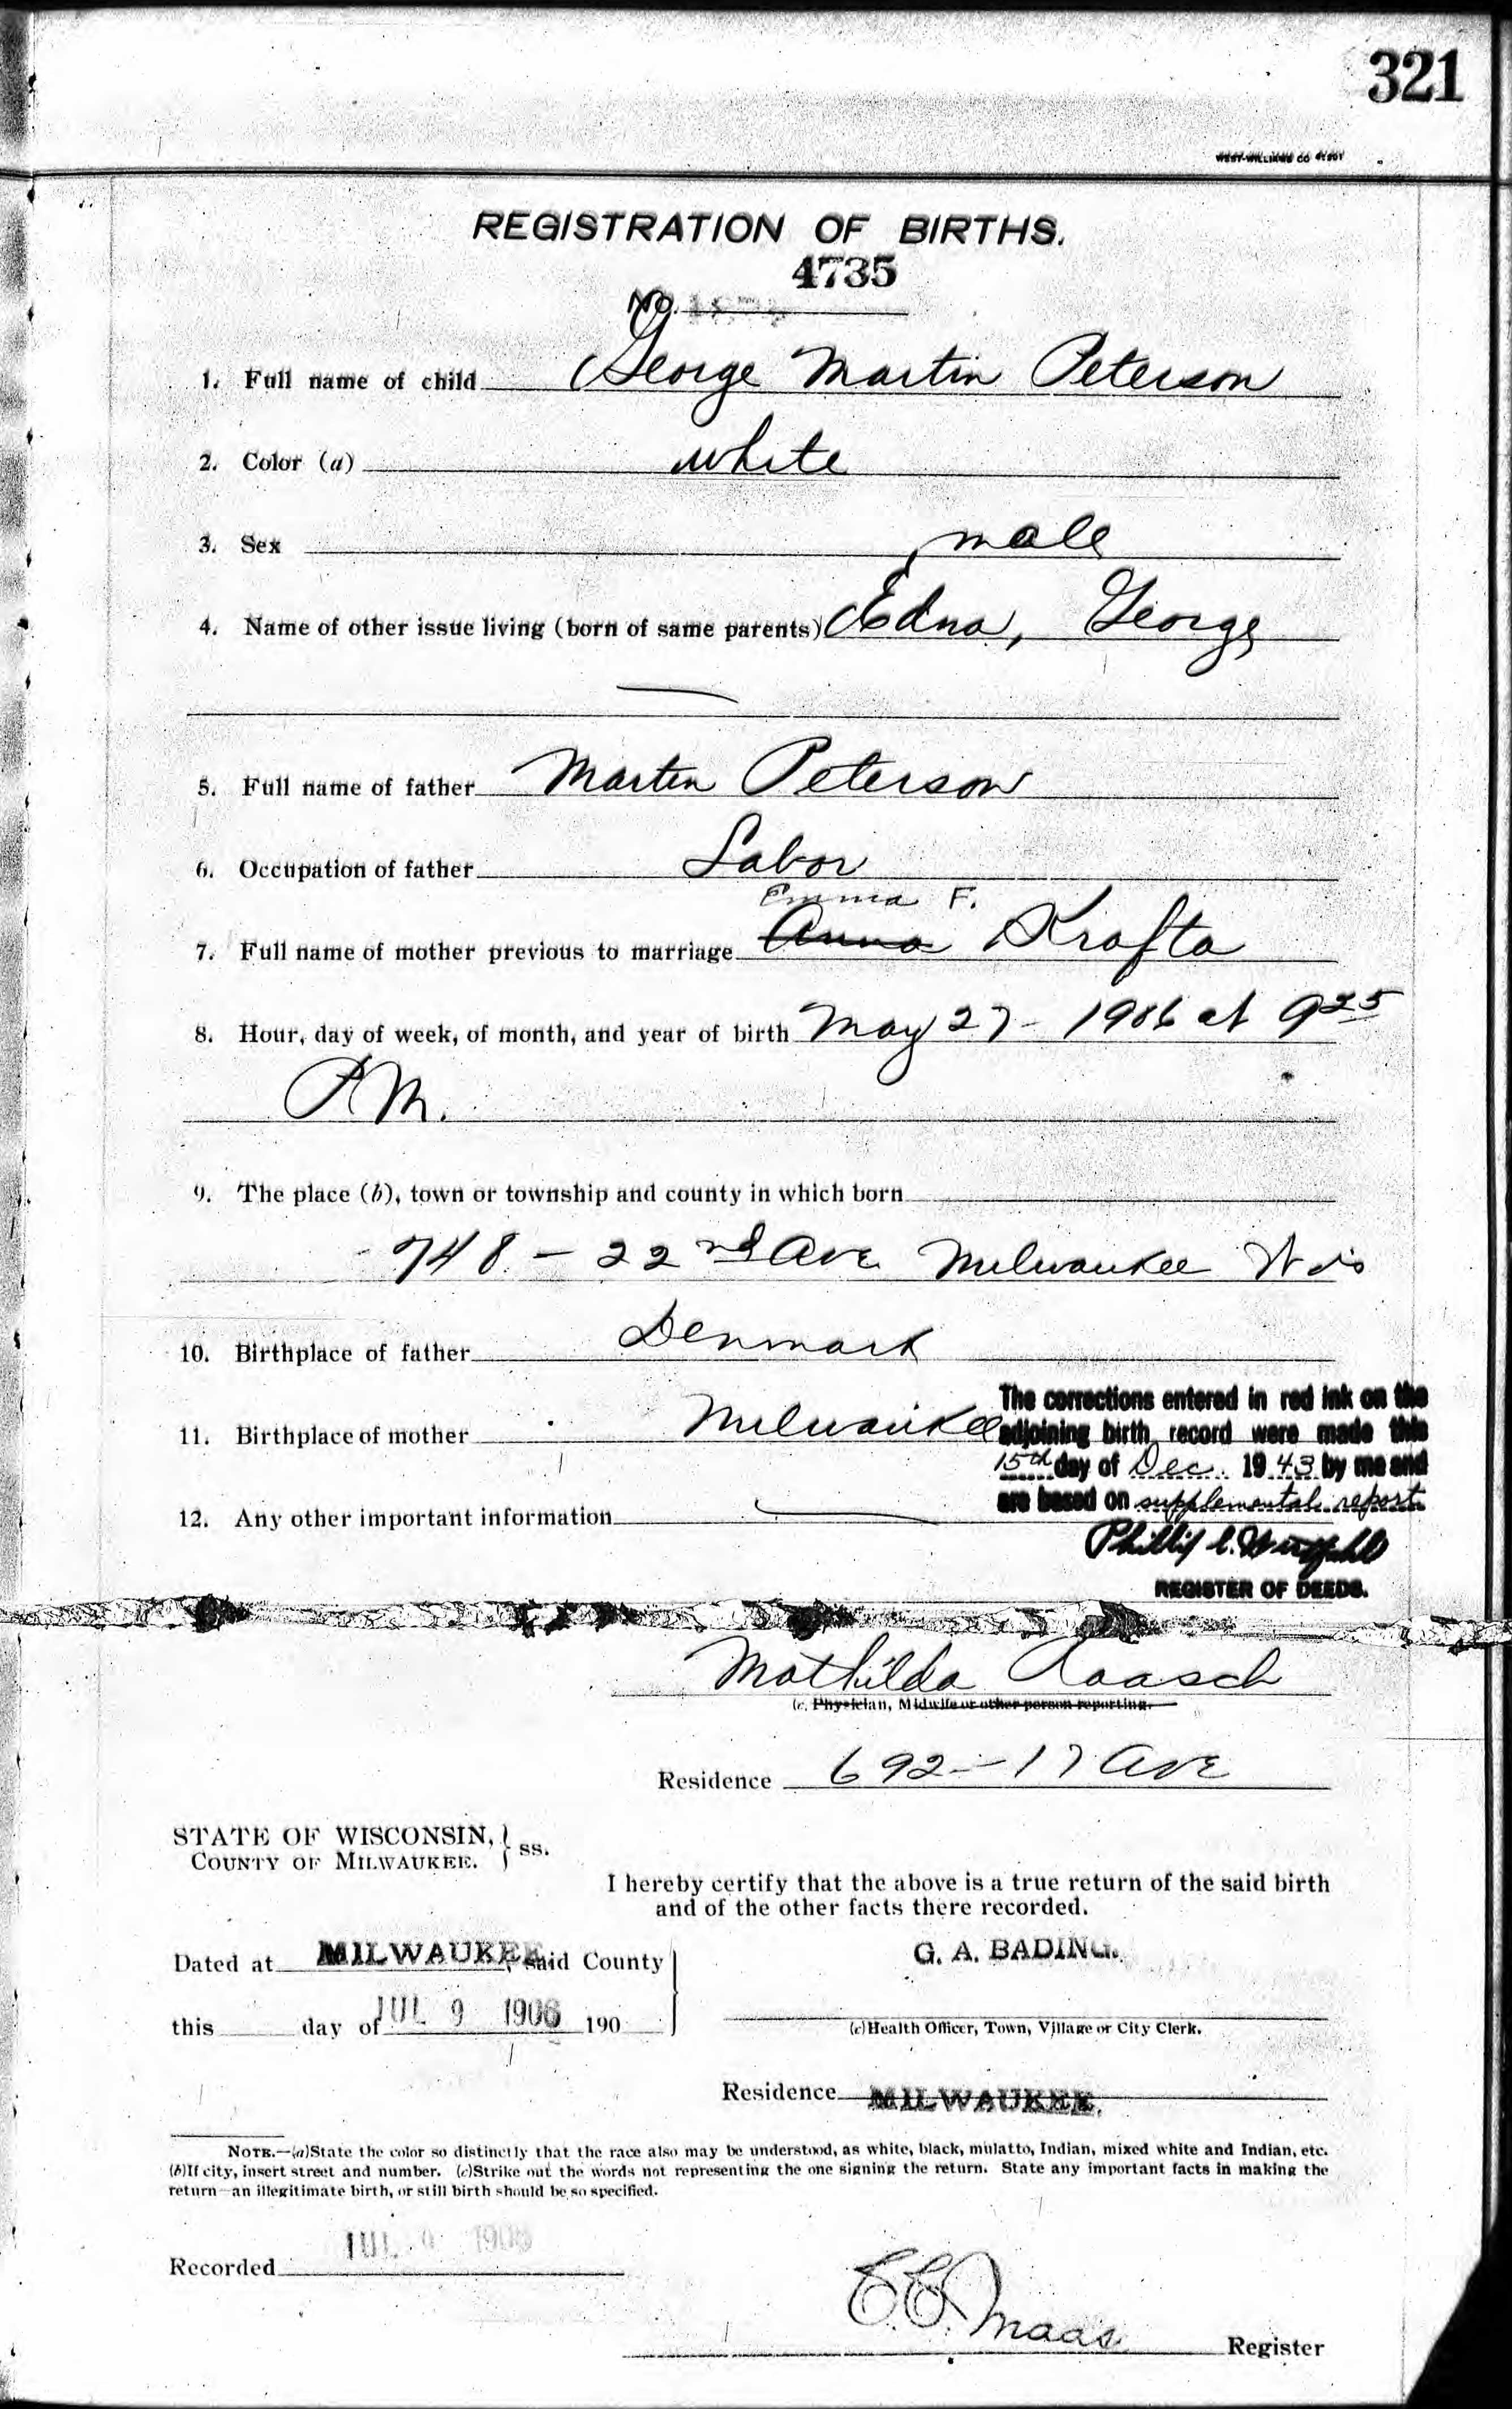 321
WEST-WILLIAMS CO
REGISTRATION OF BIRTHS.
4735
No.
1. Full name of child George Martin Peterson
2. Color (a) white
3. Sex male
4. Name of other issue living (born of same parents) Edna, George
5. Full name of father Martin Peterson
6. Occupation of father Labor
Emma F.
7. Full name of mother previous to marriage Anna Krafta
8. Hour, day of week, of month, and year of birth May 27 - 1906 at 9 25
P.M.
9. The place (b), town or township and county in which born
748 - 22nd Ave Milwaukee Wis
10. Birthplace of father Denmark
11. Birthplace of mother Milwaukee
The corrections entered in red ink on the
adjoining birth record were made this
15th day of Dec. 1943 by me and
are based on supplemental report
12. Any other important information
Phillip C.
REGISTER OF DEEDS.
Mathilda Raasch
(c. Physician, Midwife or other person reporting.
Residence 692 - 17 Ave
STATE OF WISCONSIN, } ss.
COUNTY OF MILWAUKEE. }
I hereby certify that the above is a true return of the said birth
and of the other facts there recorded.
Dated at MILWAUKEE, said County
G. A. BADING.
this day of JUL 9 1906 190
(c) Health Officer, Town, Village or City Clerk.
Residence MILWAUKEE.
NOTE.—(a) State the color so distinctly that the race also may be understood, as white, black, mulatto, Indian, mixed white and Indian, etc.
(b) If city, insert street and number. (c) Strike out the words not representing the one signing the return. State any important facts in making the
return—an illegitimate birth, or still birth should be so specified.
Recorded JUL 9 1906
E. C. Maas Register